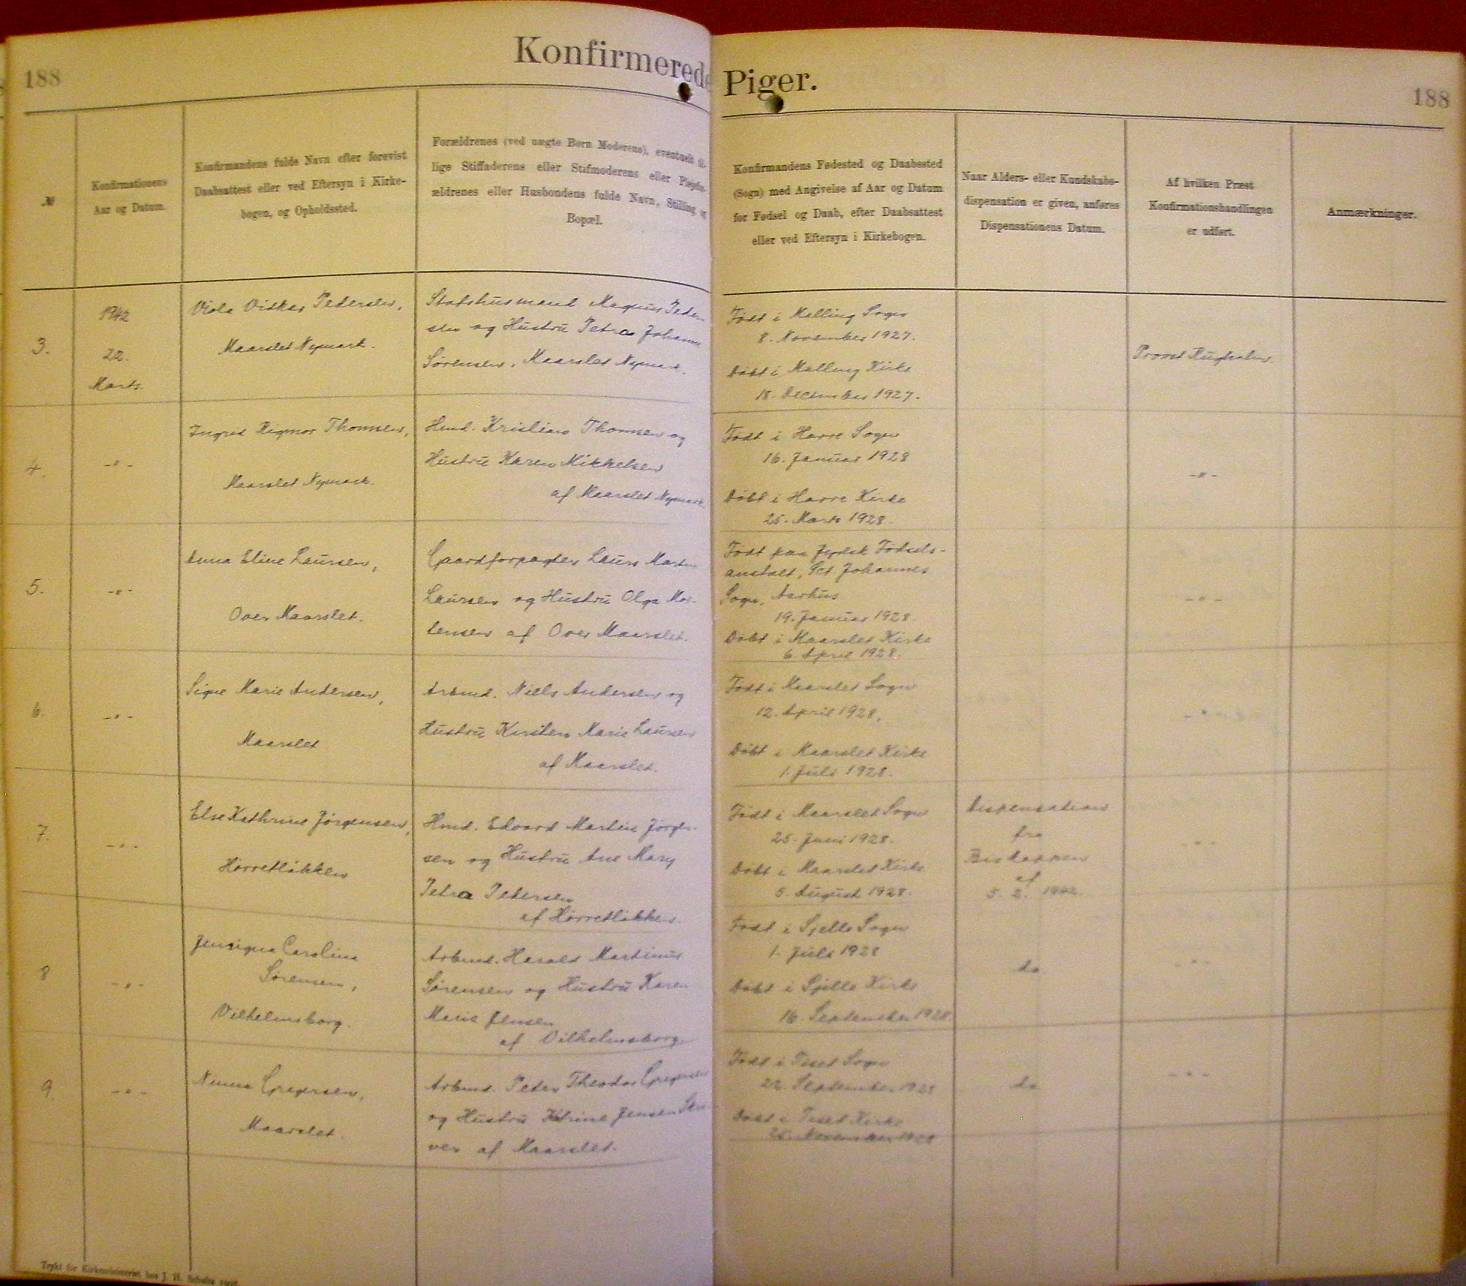 188
Konfirmerede Piger.
188
№
Konfirmationens
Aar og Datum.
Konfirmandens fulde Navn efter forevist
Daabsattest eller ved Eftersyn i Kirke-
bogen, og Opholdssted.
Forældrenes (ved uægte Børn Moderens), eventuelt til-
lige Stiffaderens eller Stifmoderens eller Plejefor-
ældrenes eller Husbondens fulde Navn, Stilling og
Bopæl.
Konfirmandens Fødested og Daabssted
(Sogn) med Angivelse af Aar og Datum
for Fødsel og Daab, efter Daabsattest
eller ved Eftersyn i Kirkebogen.
Naar Alders- eller Kundskabs-
dispensation er given, anføres
Dispensationens Datum.
Af hvilken Præst
Konfirmationshandlingen
er udført.
Anmærkninger.
3.
1942
22.
Marts.
Viola Pedersen,
Maarslet Nymark.
Statshusmand Magnus Peder-
sen og Hustru Petra Johanne
Sørensen, Maarslet Nymark.
Født i Malling Sogn
8. November 1927.
Døbt i Malling Kirke
18. December 1927.
Provst
4.
-"-
Ingrid Rigmor Thomsen,
Maarslet Nymark.
Hmd. Kristian Thomsen og
Hustru Karen Mikkelsen
af Maarslet Nymark.
Født i Harre Sogn
16. Januar 1928
Døbt i Harre Kirke
25. Marts 1928.
-"-
5.
-"-
Anna Eline Laursen,
Over Maarslet.
Gaardforpagter Laurs Martin
Laursen og Hustru Olga Mor-
tensen af Over Maarslet.
Født paa Jydsk Fødsels-
anstalt, Sct. Johannes
Sogn, Aarhus
19. Januar 1928.
Døbt i Maarslet Kirke
6. April 1928.
-"-
6.
-"-
Signe Marie Andersen,
Maarslet
Arbmd. Niels Andersen og
Hustru Kirsten Marie Laursen
af Maarslet.
Født i Maarslet Sogn
12. April 1928,
Døbt i Maarslet Kirke
1. Juli 1928.
-"-
7.
-"-
Else Kathrine Jørgensen,
Hørretløkken
Hmd. Edvard Martin Jørgen-
sen og Hustru Ane Mary
Petra Pedersen
af Hørretløkken.
Født i Maarslet Sogn
25. Juni 1928.
Døbt i Maarslet Kirke
5. August 1928.
Dispensation
fra
Biskoppen
af
5. 2. 1942.
-"-
8
-"-
Jensigna Carolina
Sørensen,
Vilhelmsborg.
Arbmd. Harald Martinus
Sørensen og Hustru Karen
Marie Jensen
af Vilhelmsborg.
Født i Sjelle Sogn
1. Juli 1928
Døbt i Sjelle Kirke
16. September 1928.
do
-"-
9.
-"-
Ninna Gregersen,
Maarslet.
Arbmd. Peter Theodor Gregersen
og Hustru Katrine Jensen Skri-
ver af Maarslet.
Født i Tiset Sogn
22. September 1928
Døbt i Tiset Kirke
25. November 1928
do
-"-
Trykt for Kirkeministeriet hos J. H. Schultz